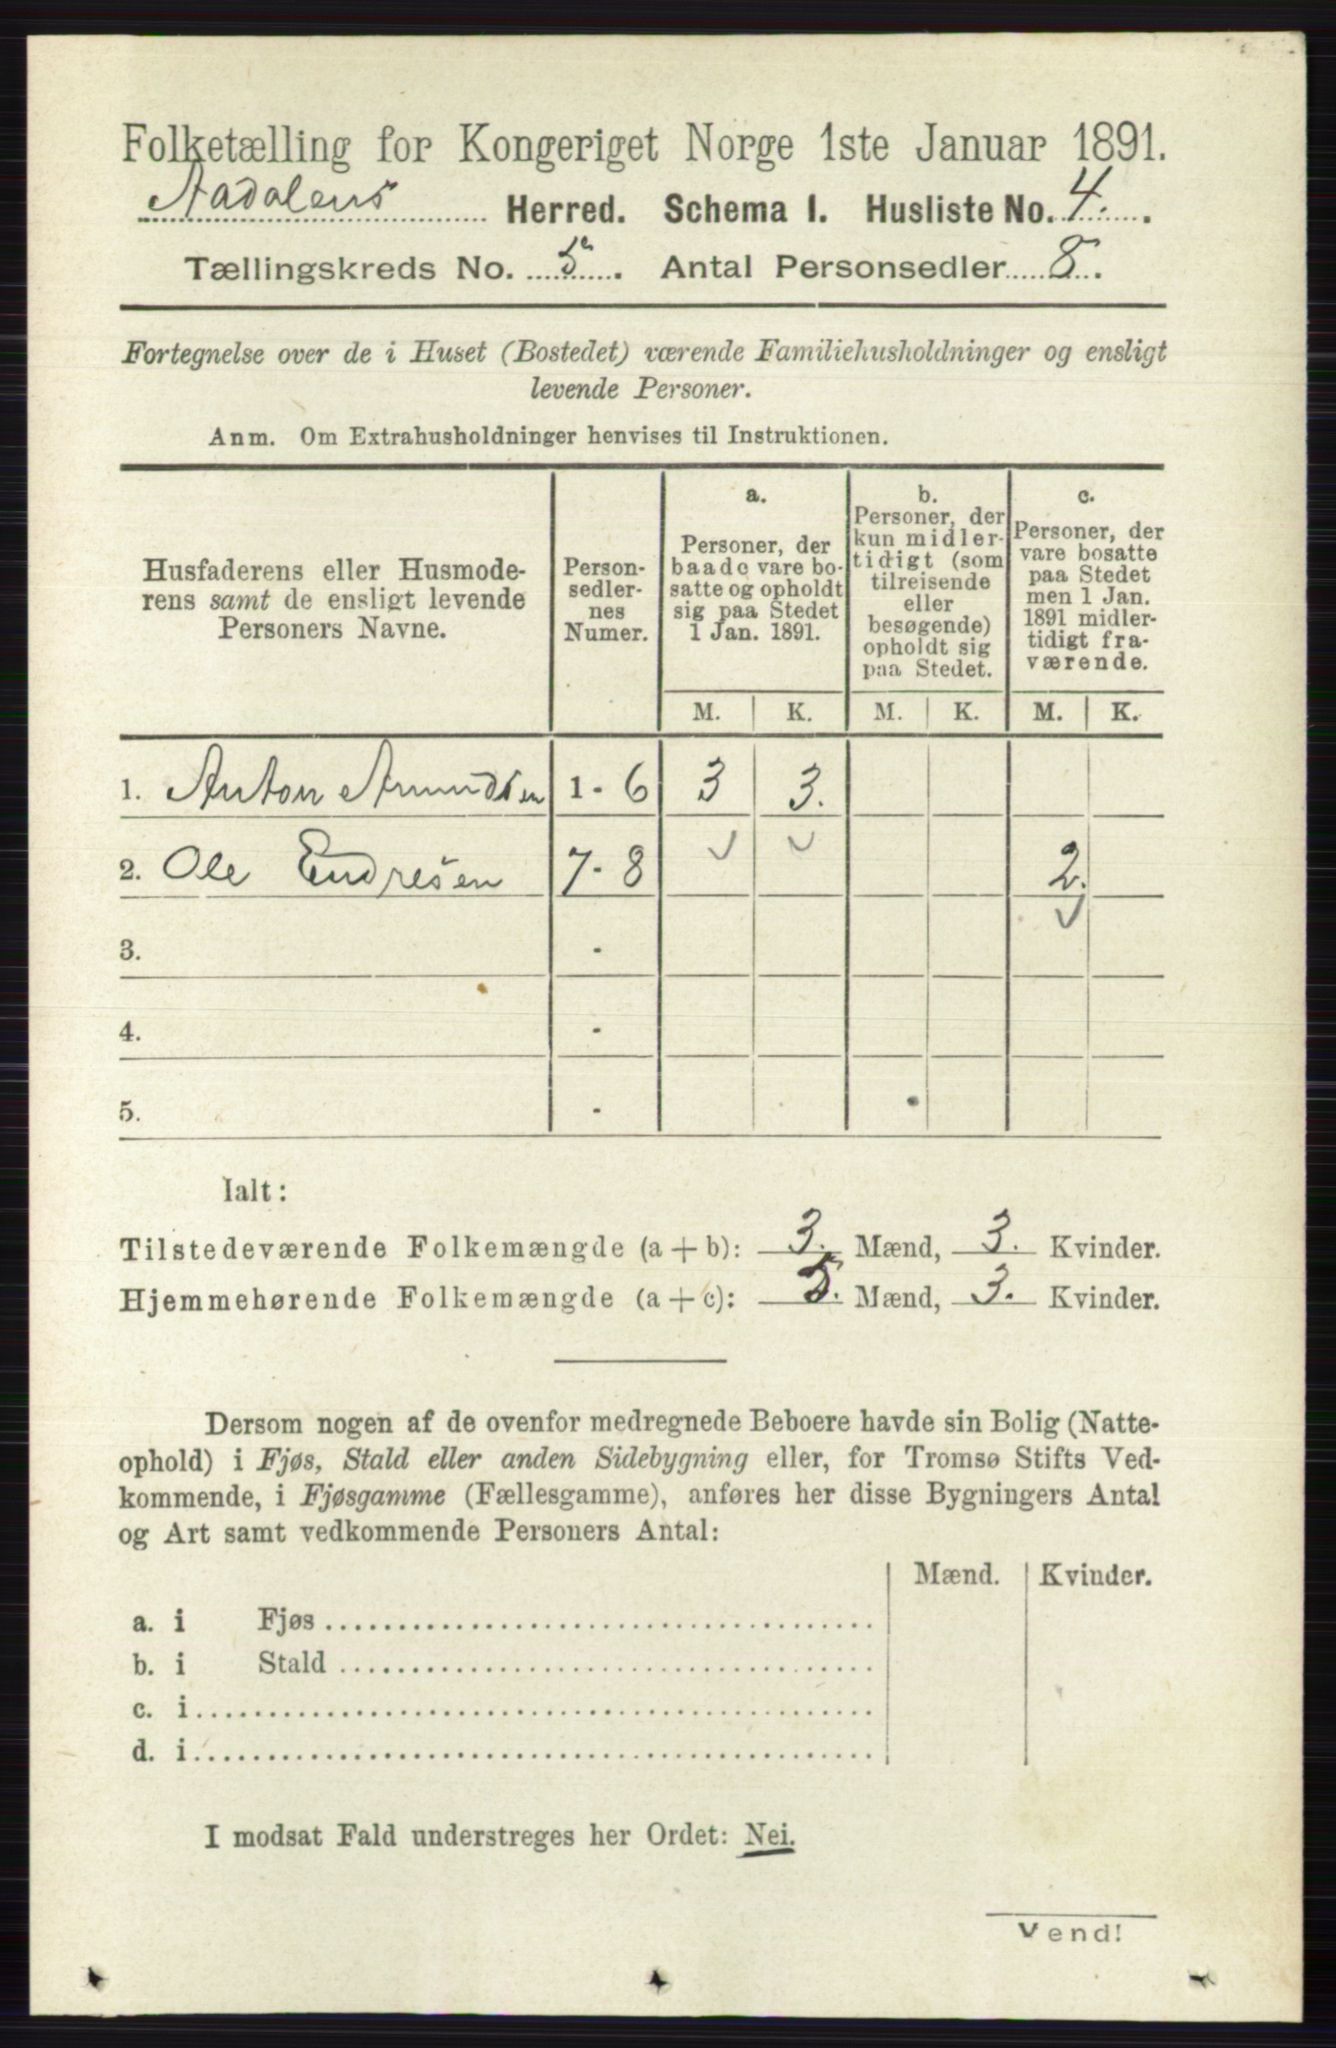 Folketælling for Kongeriget Norge 1ste Januar 1891.
Aadalens Herred. Schema I. Husliste No. 4.
Tællingskreds No. 5. Antal Personsedler 8.
Fortegnelse over de i Huset (Bostedet) værende Familiehusholdninger og ensligt
levende Personer.
Anm. Om Extrahusholdninger henvises til Instruktionen.
Husfaderens eller Husmode-
rens samt de ensligt levende
Personers Navne.
Person-
sedler-
nes
Numer.
a.
Personer, der
baade vare bo-
satte og opholdt
sig paa Stedet
1 Jan. 1891.
b.
Personer, der
kun midler-
tidigt (som
tilreisende
eller
besøgende)
opholdt sig
paa Stedet.
c.
Personer, der
vare bosatte
paa Stedet
men 1 Jan.
1891 midler-
tidigt fra-
værende.
M. K. M. K. M. K.
1. Anton Amundsen 1 - 6 3 3.
2. Ole Endresen 7 - 8 2.
3. -
4. -
5. -
Ialt:
Tilstedeværende Folkemængde (a + b): 3. Mænd, 3. Kvinder.
Hjemmehørende Folkemængde (a + c): 5. Mænd, 3. Kvinder.
Dersom nogen af de ovenfor medregnede Beboere havde sin Bolig (Natte-
ophold) i Fjøs, Stald eller anden Sidebygning eller, for Tromsø Stifts Ved-
kommende, i Fjøsgamme (Fællesgamme), anføres her disse Bygningers Antal
og Art samt vedkommende Personers Antal:
Mænd. Kvinder.
a. i Fjøs
b. i Stald
c. i
d. i
I modsat Fald understreges her Ordet: Nei.
Vend!